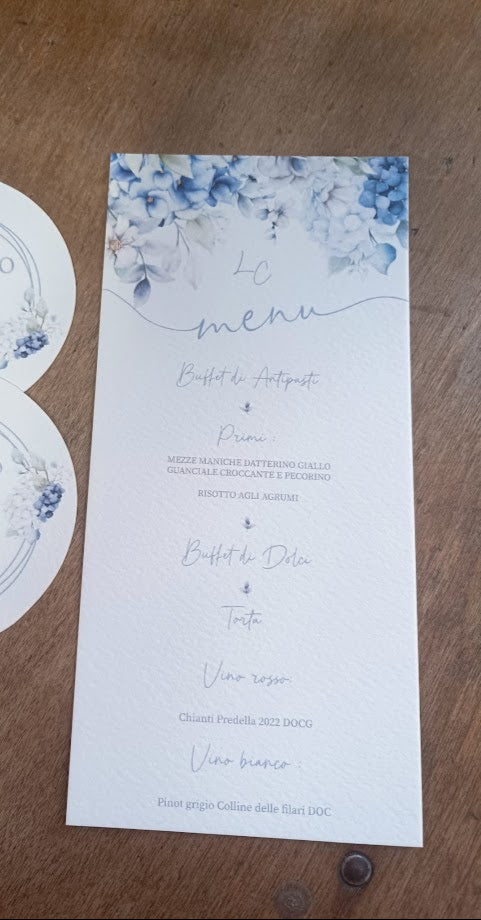 O
O
LC
menu
Buffet di Antipasti
Primi :
MEZZE MANICHE DATTERINO GIALLO
GUANCIALE CROCCANTE E PECORINO
RISOTTO AGLI AGRUMI
Buffet di Dolci
Torta
Vino rosso:
Chianti Predella 2022 DOCG
Vino bianco :
Pinot grigio Colline delle filari DOC